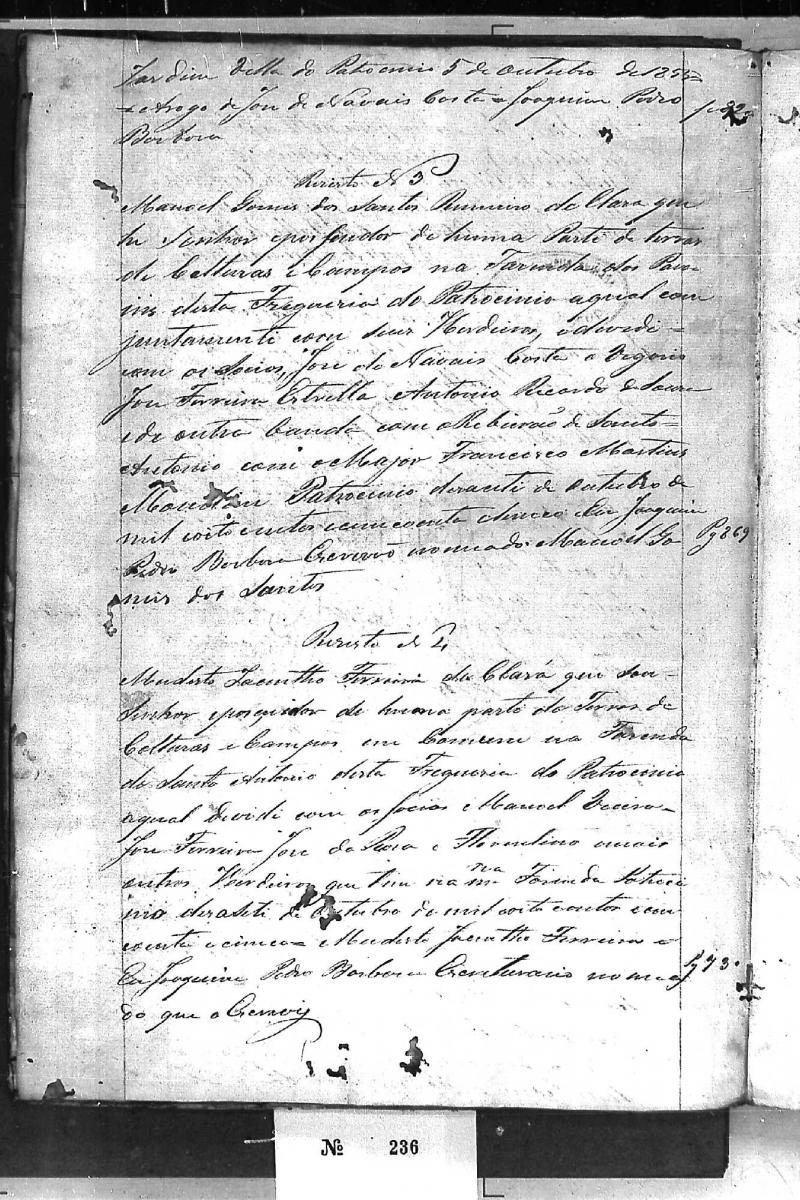 Jardim Villa do Patrocinio 5 de Outubro de 1855=
= Arogo de Jose de Navais Costa = Joaquim Pedro
Barbosa
Rezisto N 3
Manoel Gomes dos Santos de Clara que
he Senhor eposuidor de huma Parte de terras
de Colturas e Campos na Fazenda dos
desta Freguezia do Patrocinio aqual com
juntamente com seus Herdeiros, edevedi=
com os Socios, Jose de Navais Costa o Vegario
Jose Ferreira Estrella Antonio Ricardo de Souza
ede outra banda com o Ribeirão de Santo=
Antonio com o Major Francisco Martins
Patrocinio dezaseti de Outubro de
mil oito centos e cincoenta e cinco Eu Joaquim
Pedro Barbosa Escrevi nomeado Manoel Go
mes dos Santos
Pg 869
Rezisto N 4
Modesto Jacintho Ferreira da Clará que sou=
Senhor eposuidor de huma parte de Terras de
Colturas e Campos em Comum na Fazenda
de Santo Antonio desta Freguezia do Patrocinio
aqual devidi com os socios Manoel
Jose Ferreira Jose da Roza e Florentino emais
outros Herdeiros que tem na mma Fazenda Patroci
nio dezaseti de Outubro de mil oito centos e cin
coenta e cinco= Modesto Jacintho Ferreira =
Eu Joaquim Pedro Barbosa Escriturario nomea
do que o Escrevy
Pg 73.
№ 236